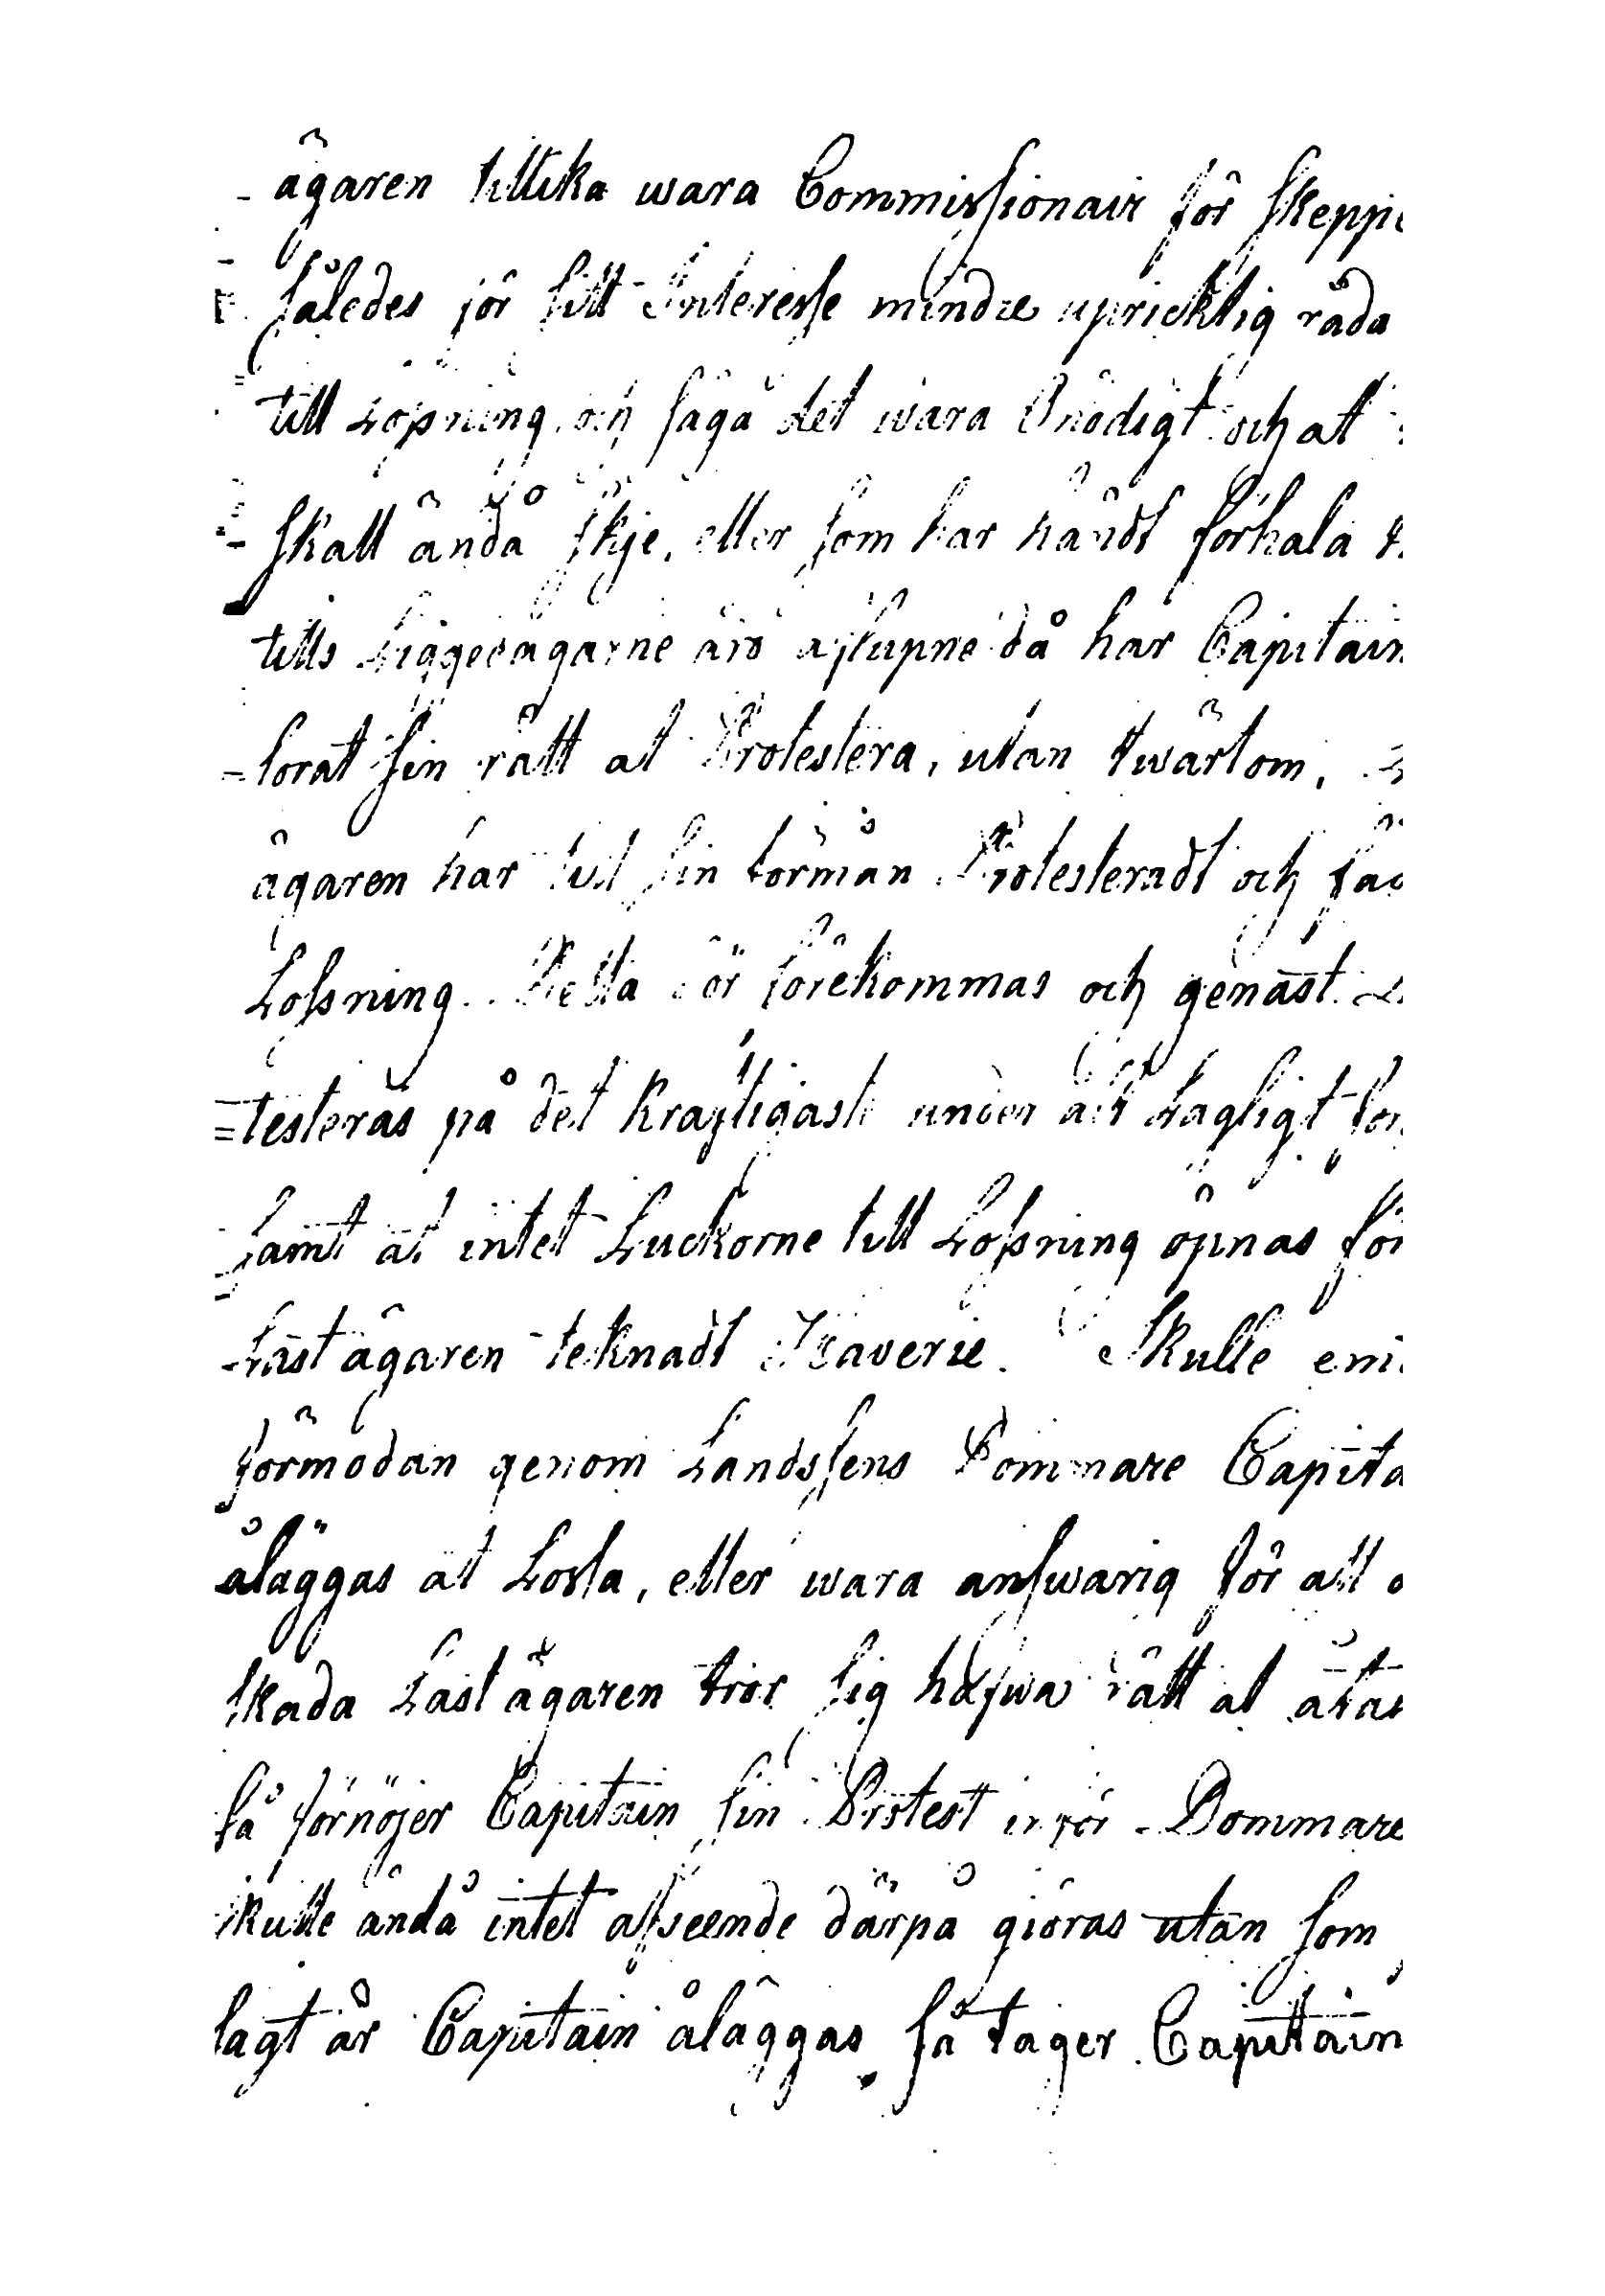 - ägaren tillika wara Commissionair för skeppe
således för sitt Interesse mindre upricktig råda
till Lossning, och säga det wara Onödigt och at
skall ändå skje, eller som har händt förhala t
tills Liggedagarne äro aflupne då har Capitain
- lorat sin rätt at Protestera, utan twärtom,
ägaren har till sin förmån Protesteradt och
Lossning. Detta bör förekommas och genast
= testeras på det kraftigaste under alt Lagligt for
samt at intet Luckorne till Lossning öpnas för
- Lastägaren teknadt Haverie. Skulle emi
förmodan genom Landssens Dommare Capita
åläggas at Lossa, eller wara answarig för all
skada Lastägaren tror sig hafwa rätt at
så förnöjer Capitain sin Protest inför Dommare
skulle ändå intet afseende därpå giöras utan som
lagt är Capitain åläggas så tager Capittain